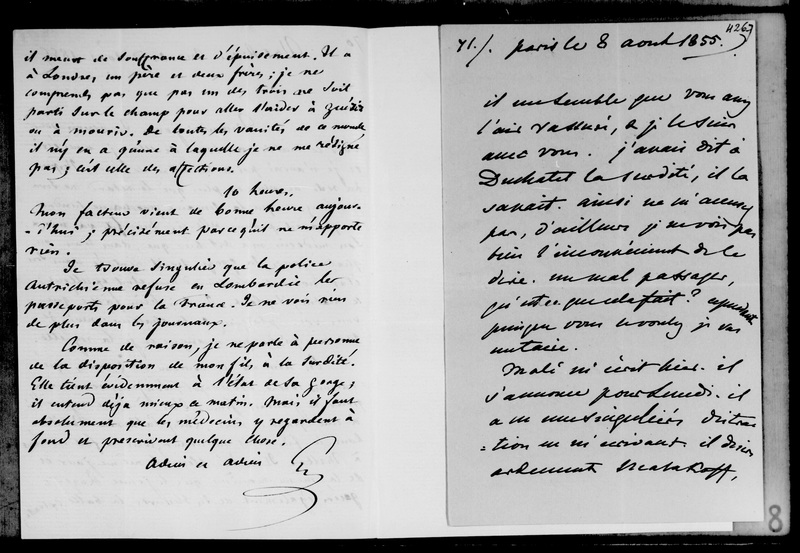 il meurt de souffrance et d'épuisement. Il a
à Londres, un père et deux frères ; je ne
comprends pas que pas un des trois ne soit
parti sur le champ pour aller l'aider à guérir
ou à mourir. De toutes les vanités de ce monde
il n'y en a qu'une à laquelle je ne me résigne
pas ; c'est celle des affections.
10 heures.
Mon facteur vient de bonne heure aujour-
-d'hui ; précisément parce qu'il ne m'apporte
rien.
Je trouve singulier que la police
Autrichienne refuse en Lombardie les
passeports pour la France. Je ne vois rien
de plus dans les journaux.
Comme de raison, je ne parle à personne
de la disposition de mon fils, à la surdité.
Elle tient évidemment à l'état de sa gorge ;
il entend déjà mieux ce matin. Mais il faut
absolument que les médecins y regardent à
fond et prescrivent quelque chose.
Adieu et adieu
4267
71./. paris le 8 aout 1855.
il me semble que vous avez
l'air rassuré, & je le suis
avec vous. j'avais dit à
Duchatel la surdité, il la
savait. ainsi ne m'accusez
pas, d'ailleurs je ne vois pas
bien l'inconvénient de le
dire. un mal passager,
qu'est-ce que cela fait? cependant
puisque vous le voulez je vais
me taire.
m'a écrit hier. il
s'annonce pour lundi. il
a eu une singulière distrac
=tion en m'écrivant il
Malakoff,
8